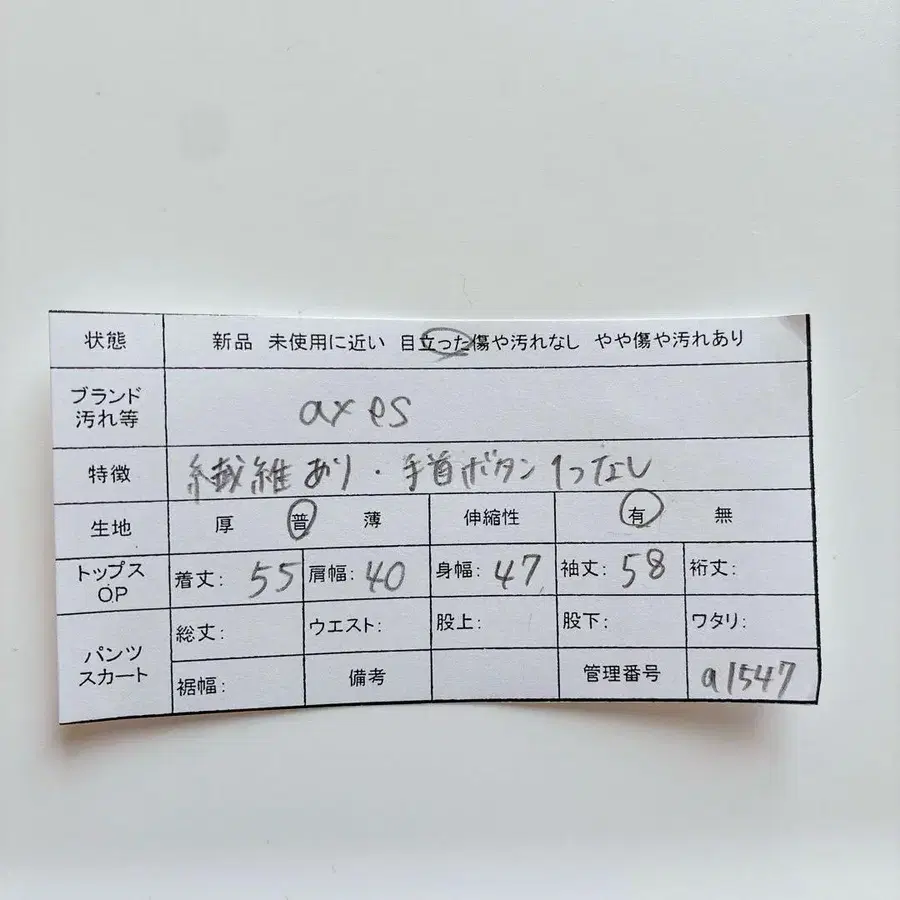 状態 新品 未使用に近い 目立った傷や汚れなし やや傷や汚れあり
ブランド
汚れ等
axes
特徴 繊維あり・手首ボタン1つなし
生地 厚 普 薄 伸縮性 有 無
トップス
OP
着丈: 55 肩幅: 40 身幅: 47 袖丈: 58 裄丈:
パンツ
スカート
総丈: ウエスト: 股上: 股下: ワタリ:
裾幅: 備考 管理番号 a1547